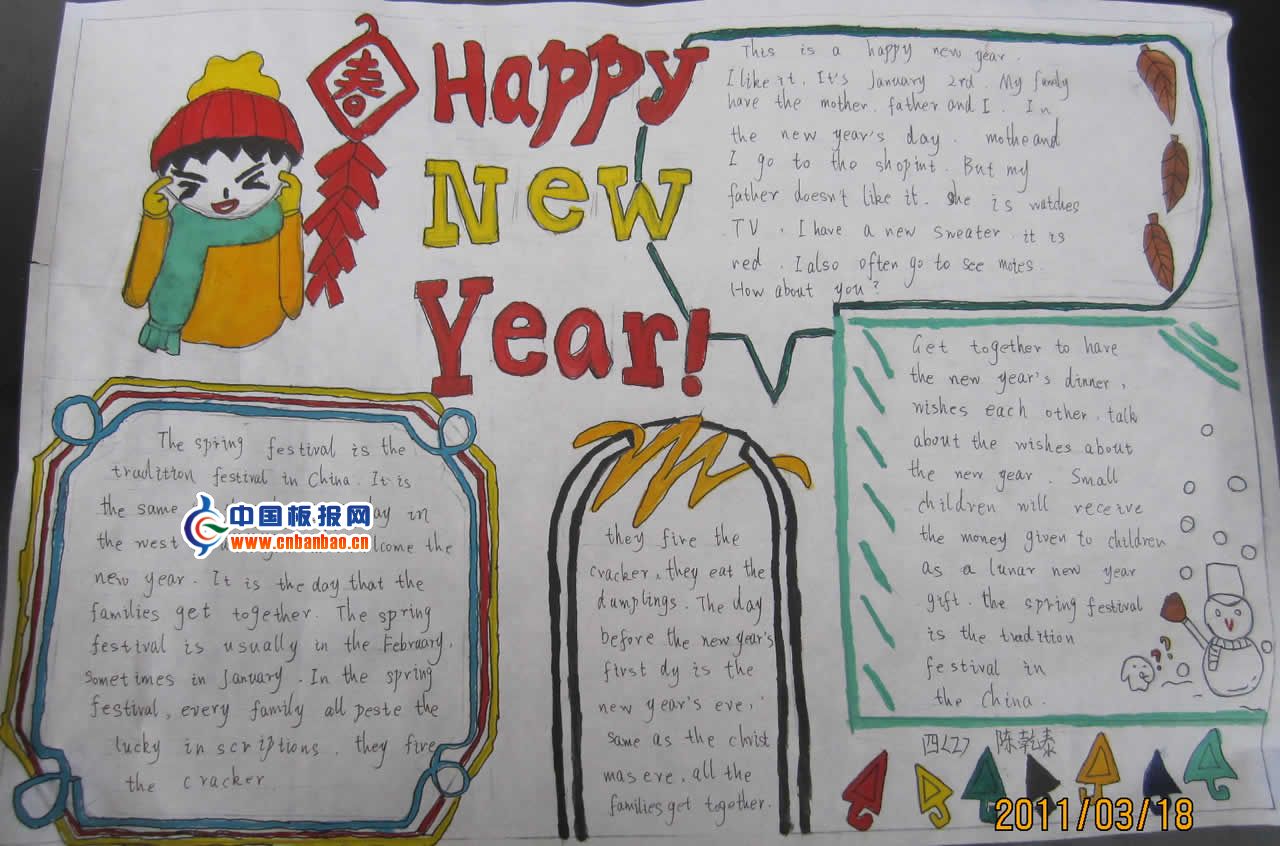 春
Happy
New
Year!
This is a happy new year.
I like it. It's January 2rd. My family
have the mother. father and I. In
the new year's day. mothe and
I go to the shopint. But my
father doesn't like it. She is watches
TV. I have a new sweater. it is
red. I also often go to see moies.
How about you?
The spring festival is the
tradition festival in China. It is
the same day in
the west welcome the
new year. It is the day that the
families get together. The spring
festival is usually in the February,
sometimes in January. In the spring
festival, every family all peste the
lucky in scriptions. they fire
the cracker
中国板报网
www.cnbanbao.cn
they fire the
cracker, they eat the
dumplings. The day
before the new year's
first dy is the
new year's eve,
same as the christ
mas eve, all the
families get together.
Get together to have
the new year's dinner,
wishes each other. talk
about the wishes about
the new year. Small
children will receive
the money given to children
as a lunar new year
gift. the spring festival
is the tradition
festival in
the China.
??
四〈2〉 陈乾泰
2011/03/18